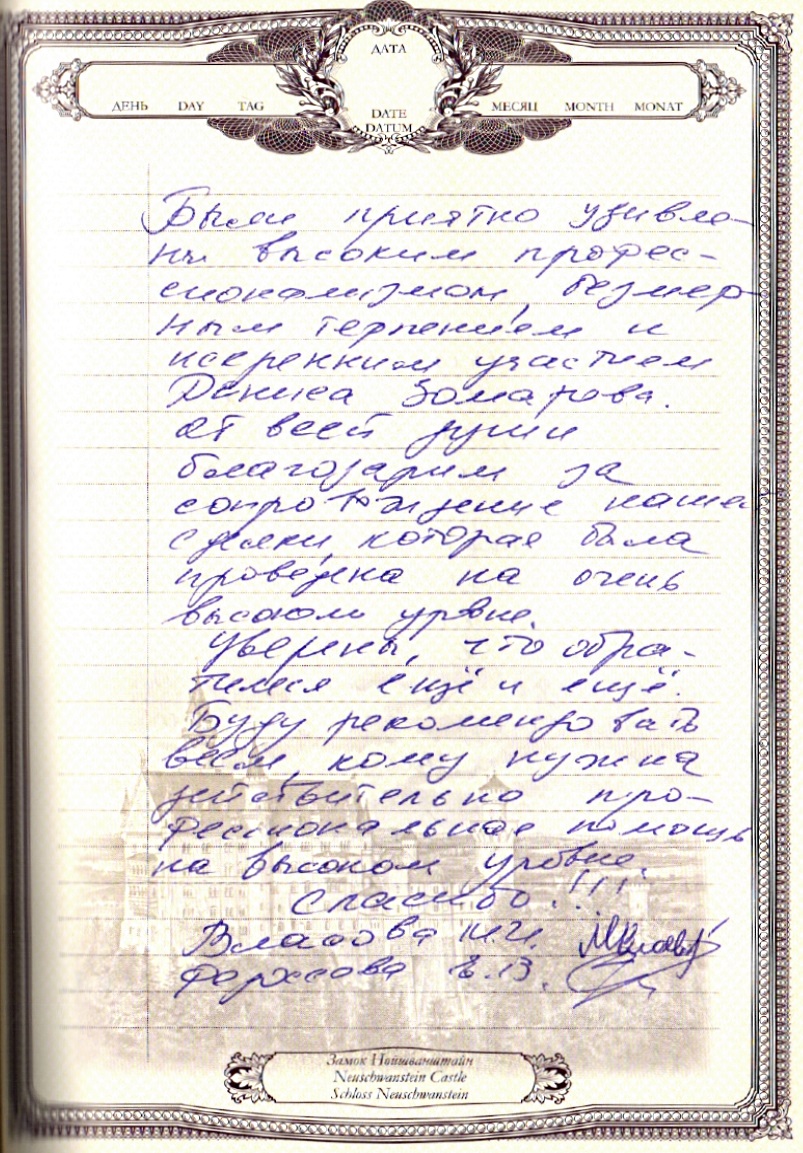 ДАТА
ДЕНЬ DAY TAG
DATE
DATUM
МЕСЯЦ MONTH MONAT
Были приятно удивле-
ны высоким профес-
сионализмом, безмер-
ным терпением и
искренним участием
Дениса Комарова.
От всей души
благодарим за
сопровождение нашей
сделки, которая была
проведена на очень
высоком уровне.
Уверены, что обра-
тимся ещё и ещё.
Буду рекомендовать
всем, кому нужна
действительно про-
фессиональная помощь
на высоком уровне.
Спасибо!!!
Власова И.И.
Е.В.
Замок Нойшванштайн
Neuschwanstein Castle
Schloss Neuschwanstein